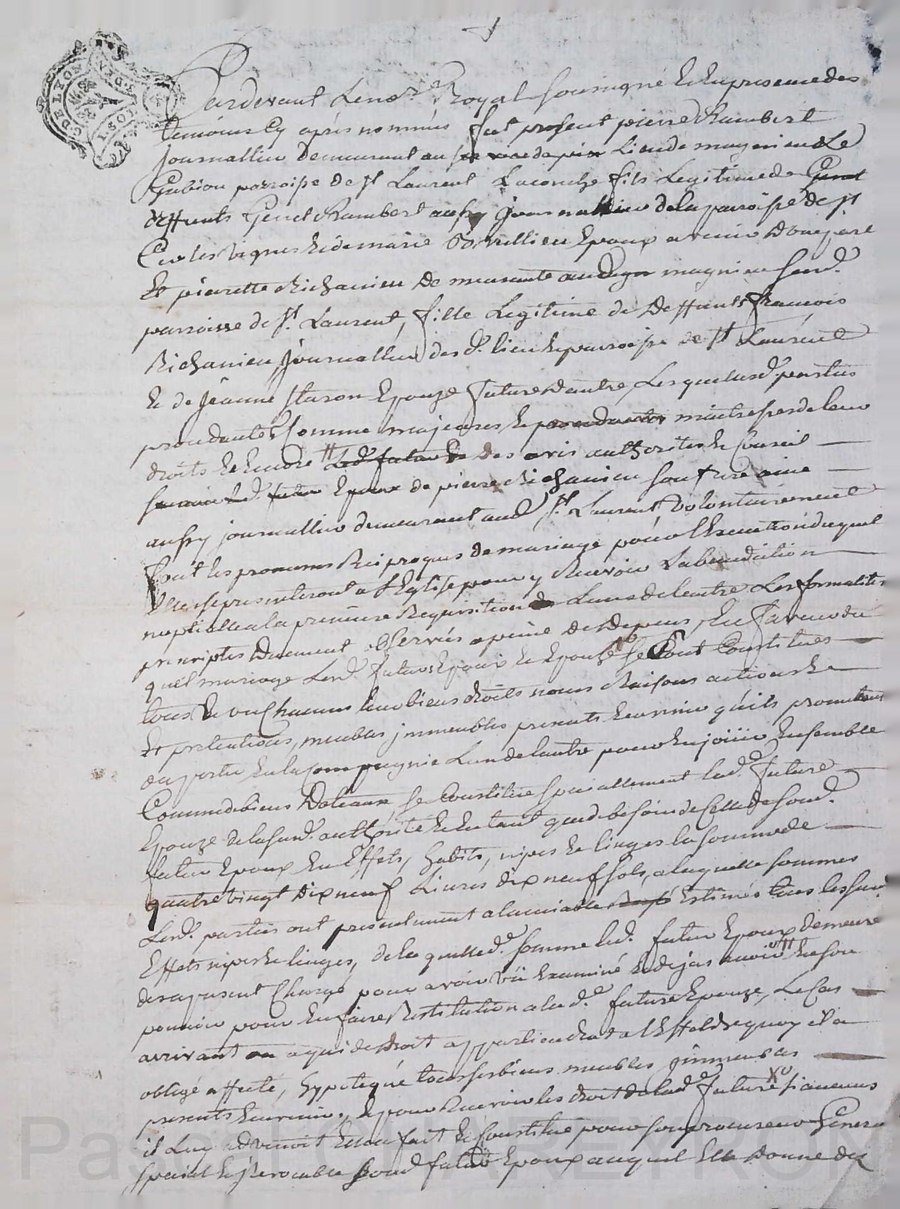 Pardevant Le nore Royal soussigné et en presence des
temoins cy aprés nommés fut present pierre Chambert
journallier Demeurant au lieu de magnieu Le
Gabion parroisse de st Laurent Laconche fils Legitime de
deffunts Genest Chambert aussy journallier de la parroisse de st
Cir les vignes et de marie époux avenir D'une part
Et pierette Richanieu Demeurante audit magnieu sus d.
parroisse de st Laurent, fille Legitime de Deffunts François
Richanieu, journallier des d. lieu et parroisse de st Laurent
Et de jeanne Staron Epouze future d'autre, Lesquelles d. parties
procedantes comme majeures et maitresses de leurs
droits et encore des avis authorités et Conseil
de pierre Richanieu son frere ainé
aussy journallier demeurant aud. st Laurent volontairement
font les promesses Reciproques de mariage pour l'Execution duquel
Elles se presenteront a l'Eglise pour y Recevoir La benediction
nuptialle a la premiere Requisition de Lun ou de L'autre Les formalités
prescriptes Duement observées a peine de Depens, En faveur du
quel mariage Lesd. futurs Epoux et Epouze se sont Constitués
tous et un Chacuns leurs biens droits noms Raisons actions
Et pretentions, meubles immeubles presents et avenir qu'ils promettent
en la Compagnie Lun de l'autre pour En jouir Ensemble
Comme de biens Dotaux se Constitue specialement lad.e future
Epouze de la susd. authorité et En tant que de besoin de Celle de son d.
futur Epoux En Effets, habits, nipes et linges la somme de
quatre vingt Dix neuf Livres dix neuf sols, a laquelle somme
Lesd. parties ont presentement a lamiable Estimés tous les susd.
Effets nipes et linges, de laquelle d.e somme led. futur Epoux demeure
des a present Chargé pour avoir vû Examiné et dejas En son
pouvoir pour En faire Restitution a lad.e future Epouze, Le Cas
arrivant ou a qui de droit appartiendrat a l'Effet dequoy il a
obligé affecté, hypotequé tous ses biens meubles immeubles
presents et avenir, Et pour Recevoir les droits de lad.e future si aucuns
il Luy advenoit Elle a fait et Constitué pour son procureur General
special et irrevocable son d. futur Epoux auquel Elle Donne de
DE LYON